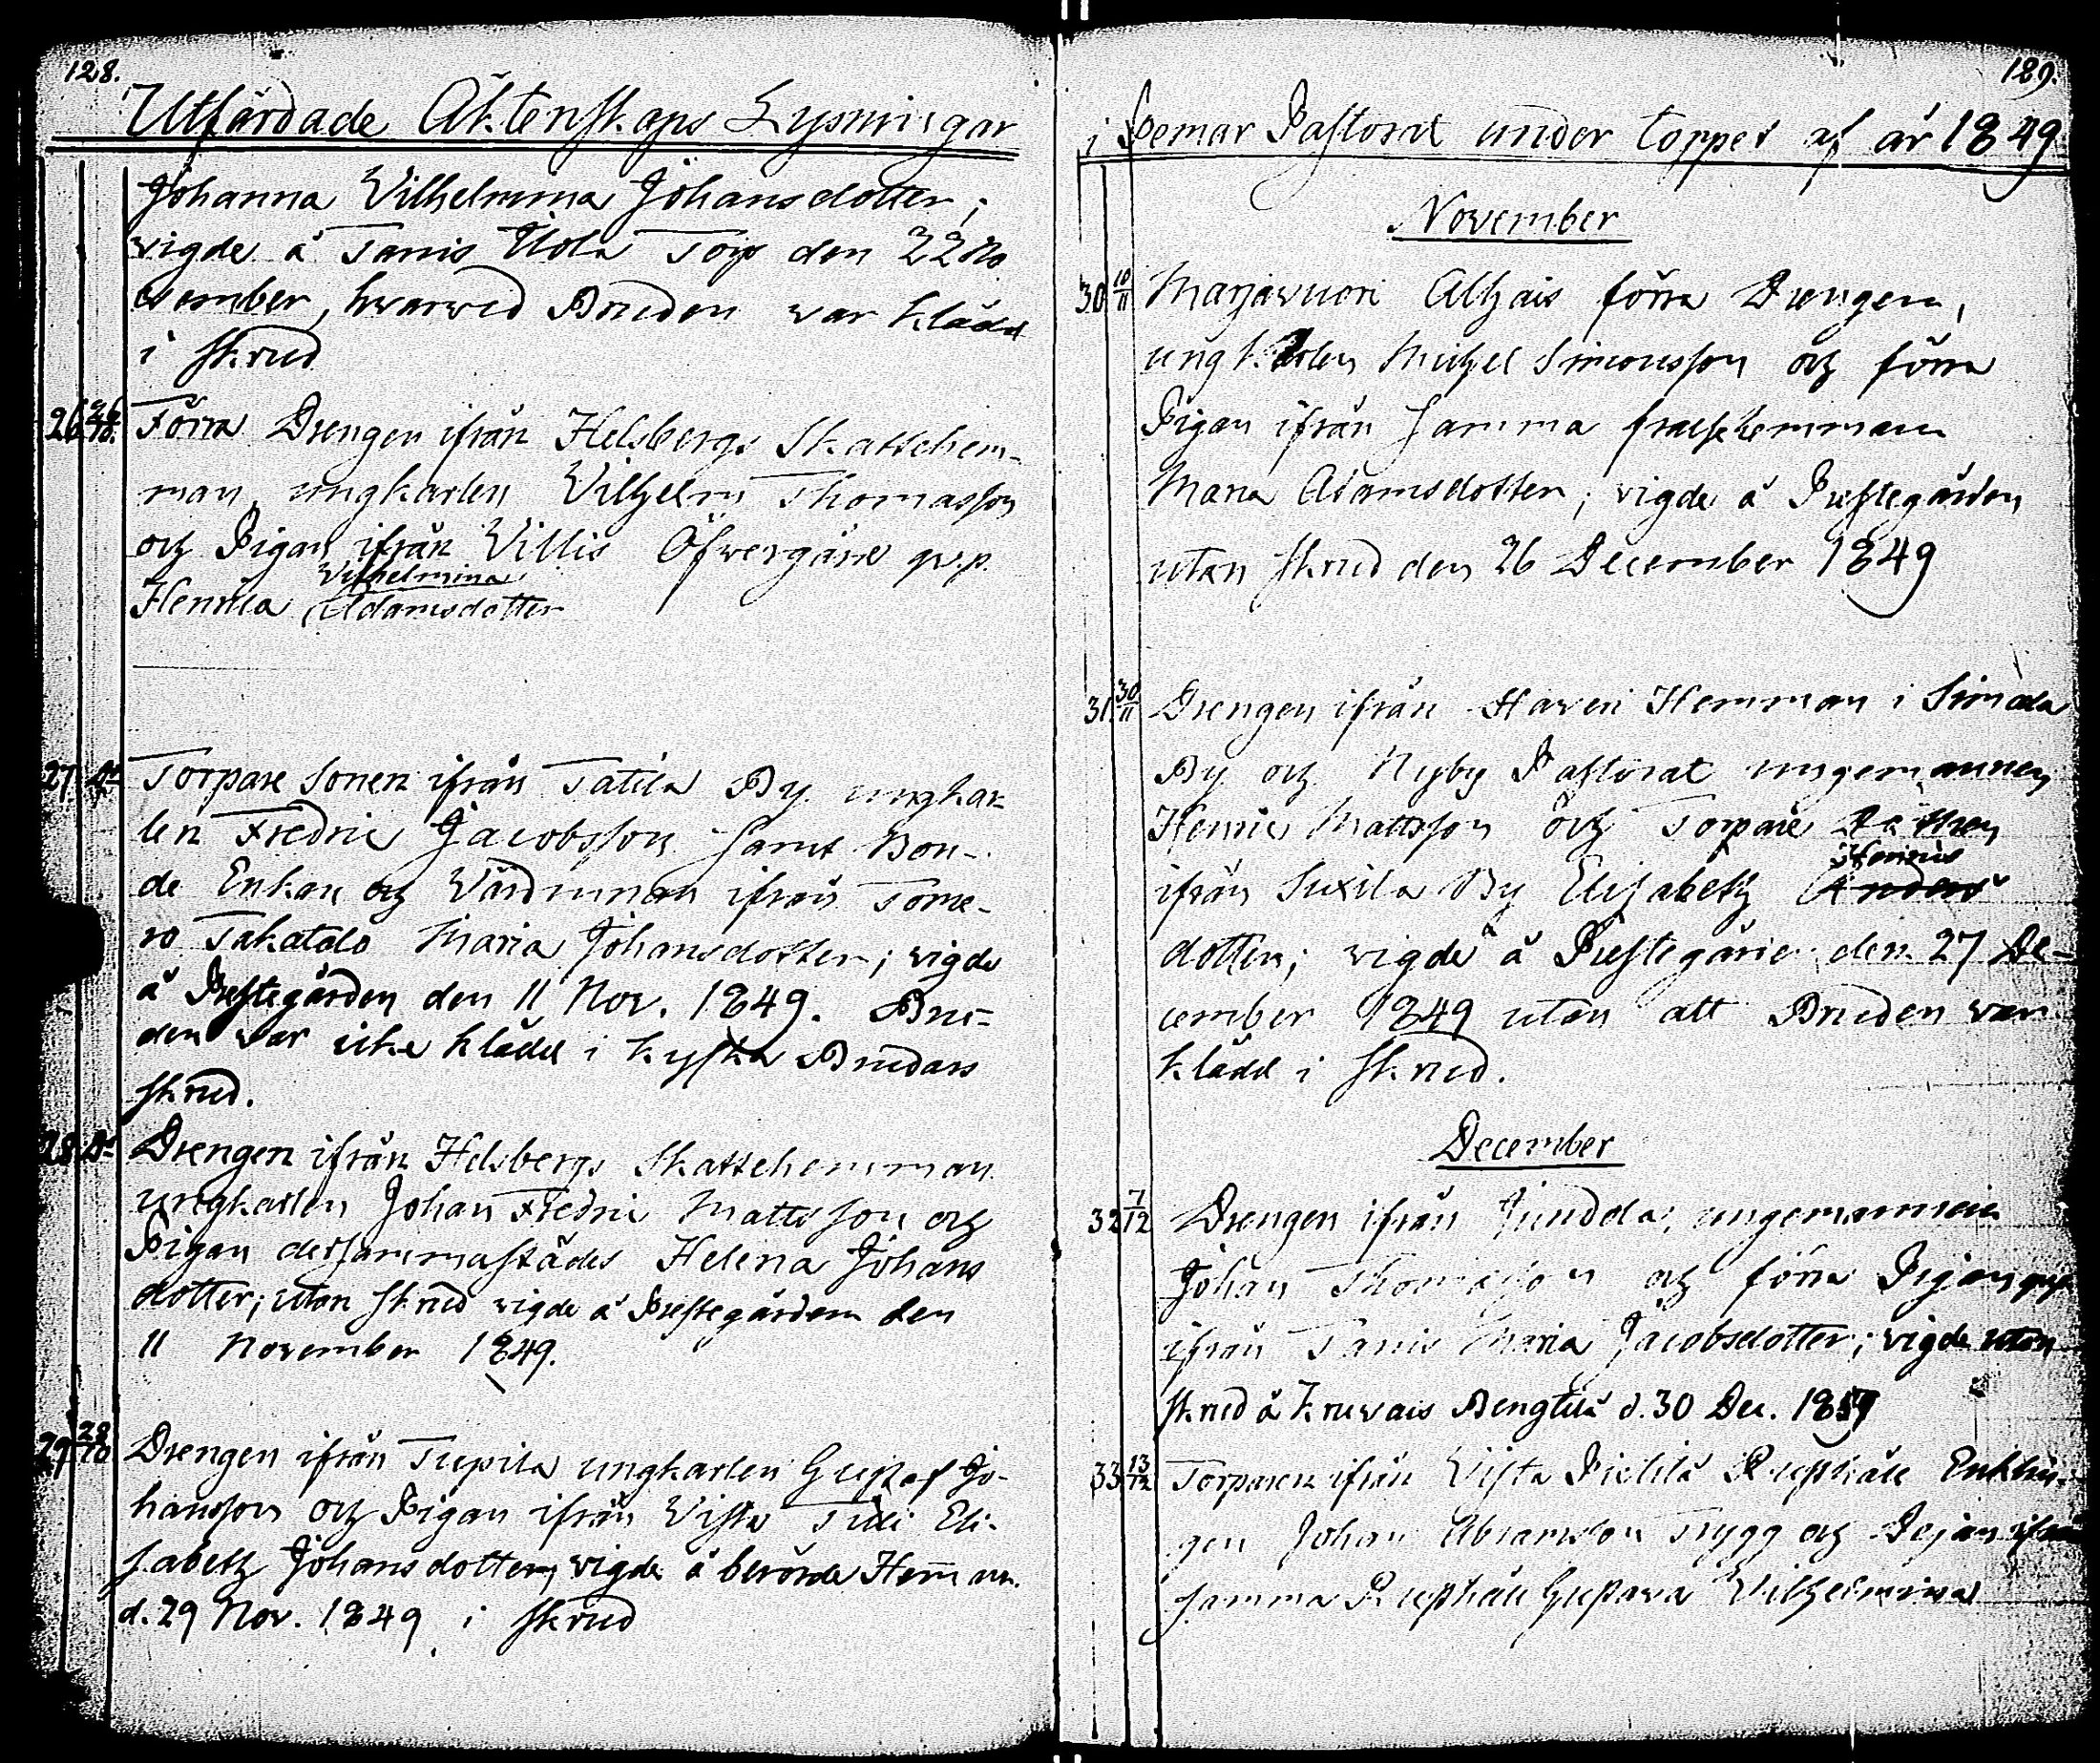 128.
Utfärdade Äktenskaps Lysningar
Johanna Vilhelmina Johansdotter;
vigde å Tanis Uola Torp den 22 No
vember, hwarved Bruden var klädd
i skrud
26 26/10. Förra Drengen ifrån Helsbergs Skattehem-
man, ungkarlen Vilhelm Thomasson
och Pigan ifrån Villis Öfvergård qv.p.
Vilhelmina
Henrica Adamsdotter
27 Do Torpare Sonen ifrån Tatila By ungkar-
len Fredric Jacobsson samt Bon-
de Enkan och Värdinnan ifrån Tome-
ro Takatalo Maria Johansdotter; vigde
å Prestegården den 11 Nov. 1849. Bru-
den var icke klädd i kyska Brudars
skrud.
28 Do Drengen ifrån Helsbergs Skattehemman
ungkarlen Johan Fredric Mattsson och
Pigan dersammastädes Helena Johans
dotter; utan skrud vigde å Prestegården den
11 November 1849.
29 28/10 Drengen ifrån Tupila ungkarlen Gustaf Jo-
hansson och Pigan ifrån Vista Tilli Eli-
sabeth Johansdotter, vigde å berörde Hemman
d. 29 Nov. 1849 i skrud
129.
i Pemar Pastorat under loppet af år 1849
November
30 10/11 Marjavuori Alhais förra Drengen,
ungkarlen Michel Simonsson och förra
Pigan ifrån Samma fraelsehemman
Maria Adamsdotter; vigde å Prestegården
utan skrud den 26 December 1849
31 30/11 Drengen ifrån Haveri Hemman i Simala
By och Nyby Pastorat ungemannen
Henric Mattsson och Torpare Dottren
Henrics
ifrån Suxila By Elisabeth Anders
dotter; vigde å Prestegård den 27 De-
cember 1849 utan att Bruden var
klädd i skrud.
December
32 7/12 Drengen ifrån Jundola, ungemannen
Johan Thomasson och förra Pigan
ifrån Tanis Maria Jacobsdotter; vigde utan
skrud å Kruvais Bengtilä d. 30 Dec. 1849
33 13/12 Torparen ifrån Vista Pietilä Rusthåll Enklin-
gen Johan Abramsson Trygg och Pigan ifrån
samma Rusthåll Gustava Vilhelmina